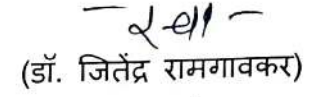 (डॉ. जितेंद्र रामगावकर)